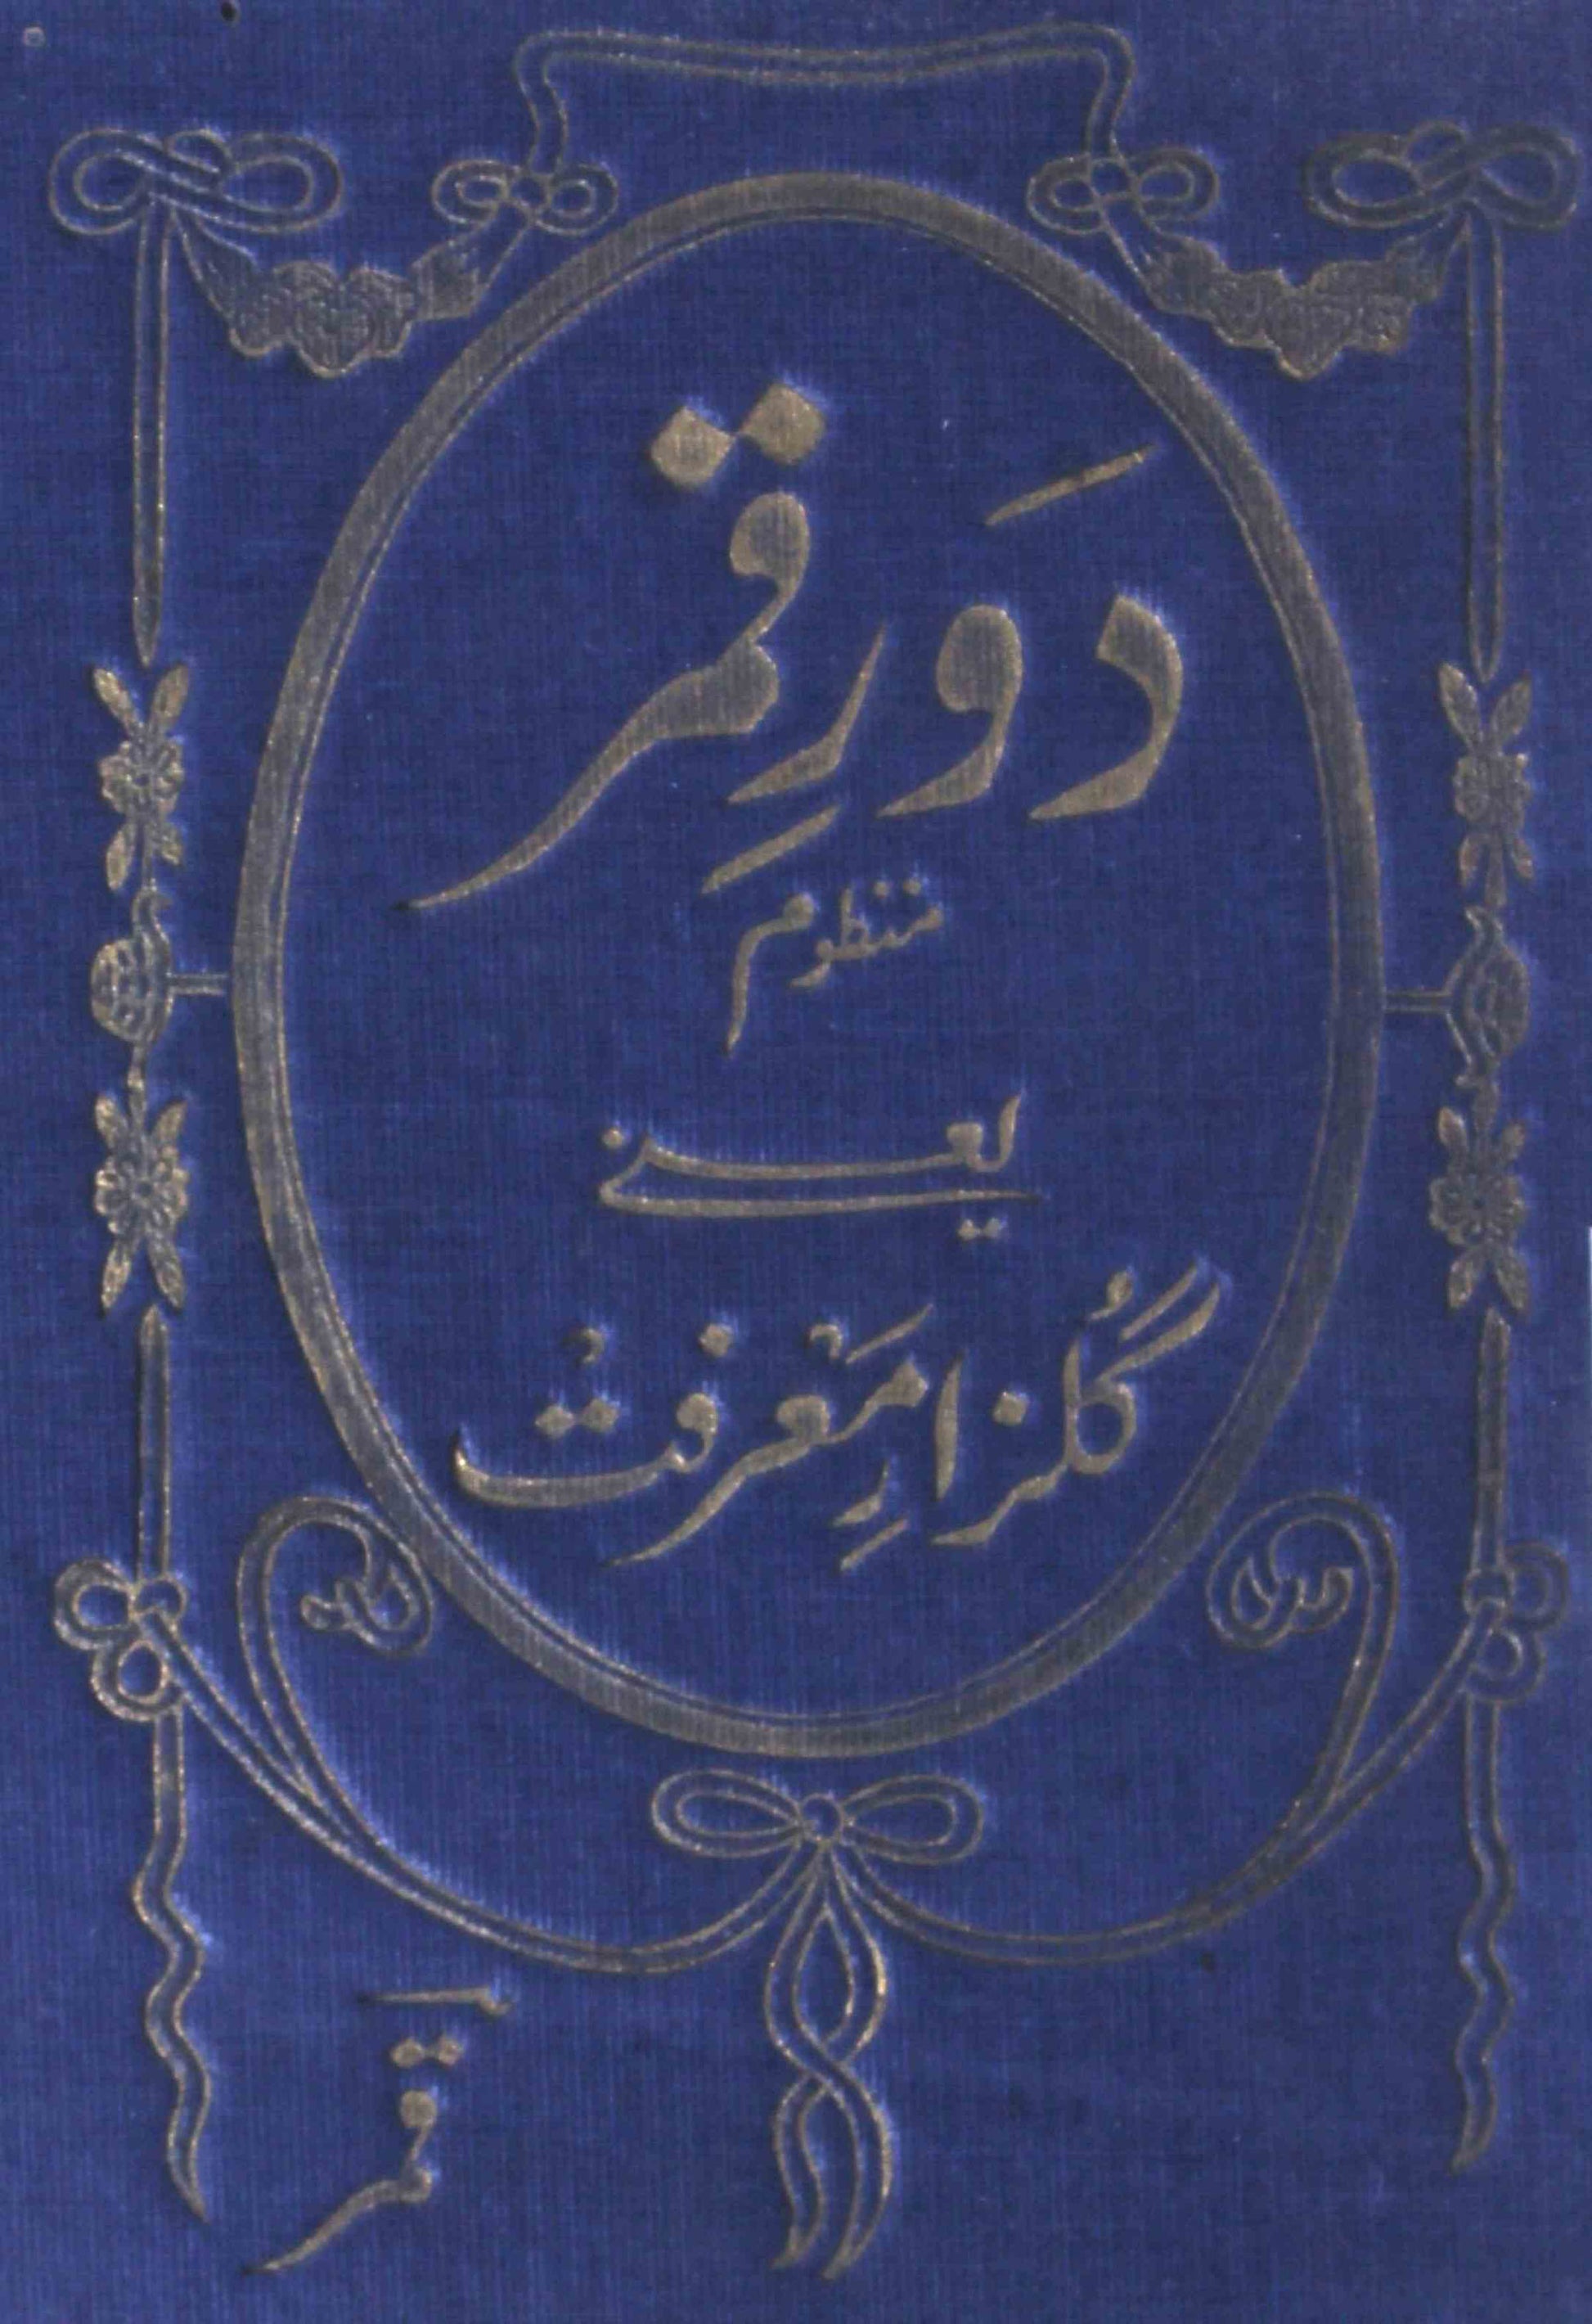 دَورِ قمر
منظوم
یعنی
گُلزارِ مَعْرفتْ
قمرؔ